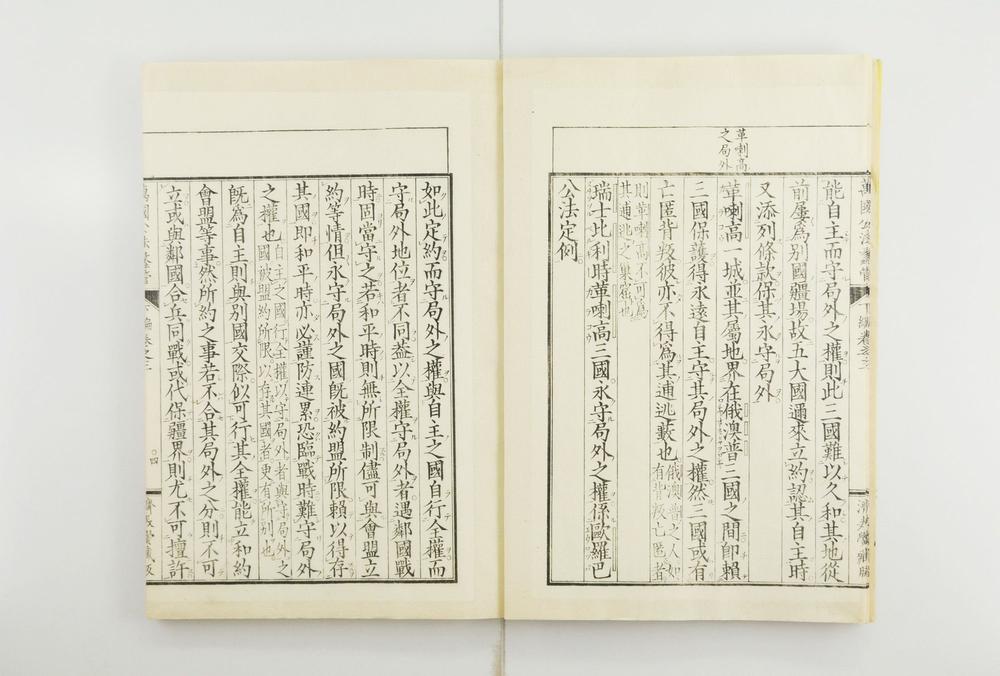 革喇高
之局外
能自主而守局外之權則此三國難以久和其地從
前屢爲別國疆場故五大國邇來立約認其自主時
又添列條款保其永守局外
革喇高一城並其屬地界在俄澳普三國之間卽賴
三國保護得永遠自主守其局外之權然三國或有
亡匿背叛彼亦不得爲其逋逃藪也俄澳普之人如有背叛亡匿者
則革喇高不可爲其逋逃之巢窟也
瑞士比利時革喇高三國永守局外之權係歐羅巴
公法定例
如此定約而守局外之權與自主之國自行全權而
守局外地位者不同蓋以全權守局外者遇鄰國戰
時固當守之若和平時則無所限制儘可與會盟立
約等情但永守局外之國旣被約盟所限賴以得存
其國卽和平時亦必謹防連累恐臨戰時難守局外
之權也自主之國行全權以守局外者與守局外之國被盟約所限以存其國者更有所別也
旣爲自主則與別國交際似可行其全權能立和約
會盟等事然所約之事若不合其局外之分則不可
立或與鄰國合兵同戰或代保疆界則尤不可擅許
四